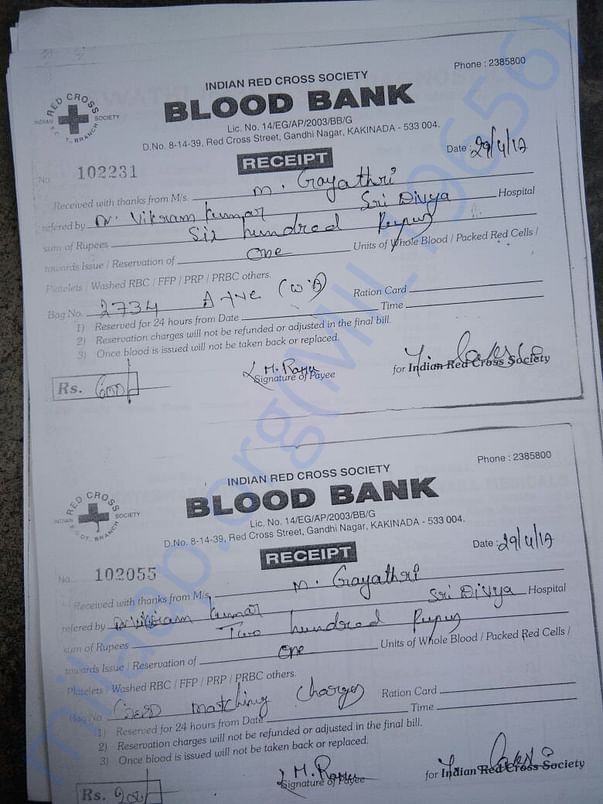 Phone : 2385800
INDIAN RED CROSS SOCIETY
BLOOD BANK
Lic. No. 14/EG/AP/2003/BB/G
D.No. 8-14-39, Red Cross Street, Gandhi Nagar, KAKINADA - 533 004.
RED CROSS
INDIAN SOCIETY
BRANCH
RECEIPT
No. 102231
Date : 29/4/17
Received with thanks from M/s. M. Gayathri
refered by Dr. Vikram Kumar Sri Divya Hospital
sum of Rupees Six hundred Rupees
towards Issue / Reservation of One Units of Whole Blood / Packed Red Cells /
Platelets / Washed RBC / FFP / PRP / PRBC others.
Bag No. 2734 A+ve (W.B) Ration Card
1) Reserved for 24 hours from Date Time
2) Reservation charges will not be refunded or adjusted in the final bill.
3) Once blood is issued will not be taken back or replaced.
Rs. 600
Signature of Payee
for Indian Red Cross Society
Phone : 2385800
INDIAN RED CROSS SOCIETY
BLOOD BANK
Lic. No. 14/EG/AP/2003/BB/G
D.No. 8-14-39, Red Cross Street, Gandhi Nagar, KAKINADA - 533 004.
RED CROSS
INDIAN SOCIETY
DIST. BRANCH
RECEIPT
No. 102055
Date : 29/4/17
Received with thanks from M/s. M. Gayathri
refered by Dr. Vikram Kumar Sri Divya Hospital
sum of Rupees Two hundred Rupees
towards Issue / Reservation of One Units of Whole Blood / Packed Red Cells /
Platelets / Washed RBC / FFP / PRP / PRBC others.
Bag No. matching charges Ration Card
1) Reserved for 24 hours from Date Time
2) Reservation charges will not be refunded or adjusted in the final bill.
3) Once blood is issued will not be taken back or replaced.
Rs. 200
Signature of Payee
for Indian Red Cross Society